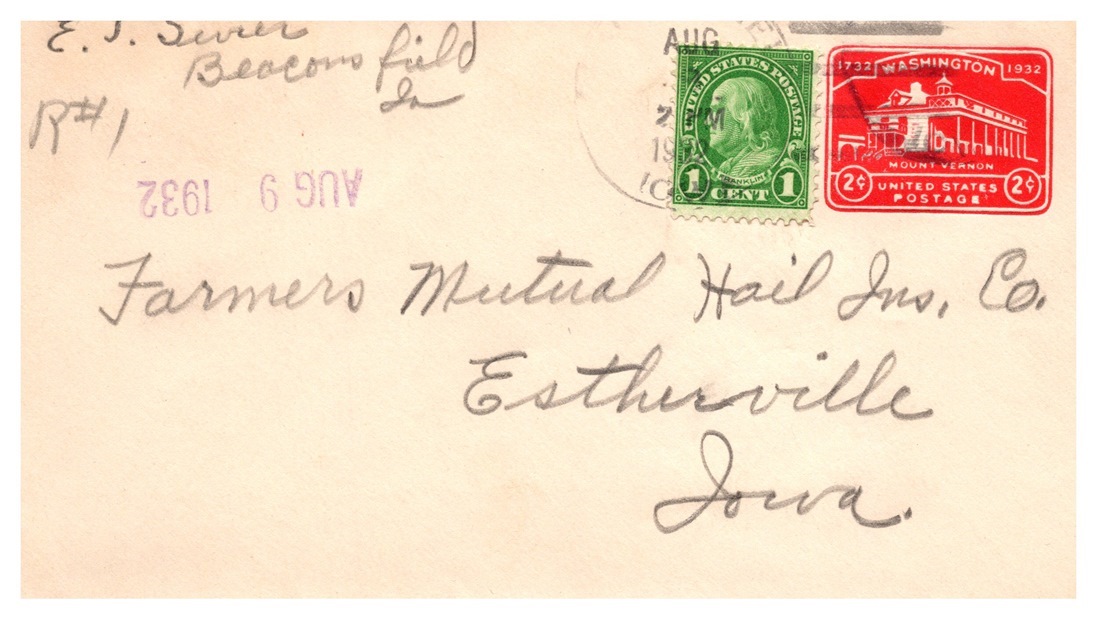 E. J. Sevier
Beacons field
Ia
R#1
AUG 9 1932
AUG
PM
1932
UNITED STATES POSTAGE
FRANKLIN
1 CENT 1
1732 WASHINGTON 1932
MOUNT VERNON
2¢ UNITED STATES 2¢
POSTAGE
Farmers Mutual Hail Ins. Co.
Estherville
Iowa.